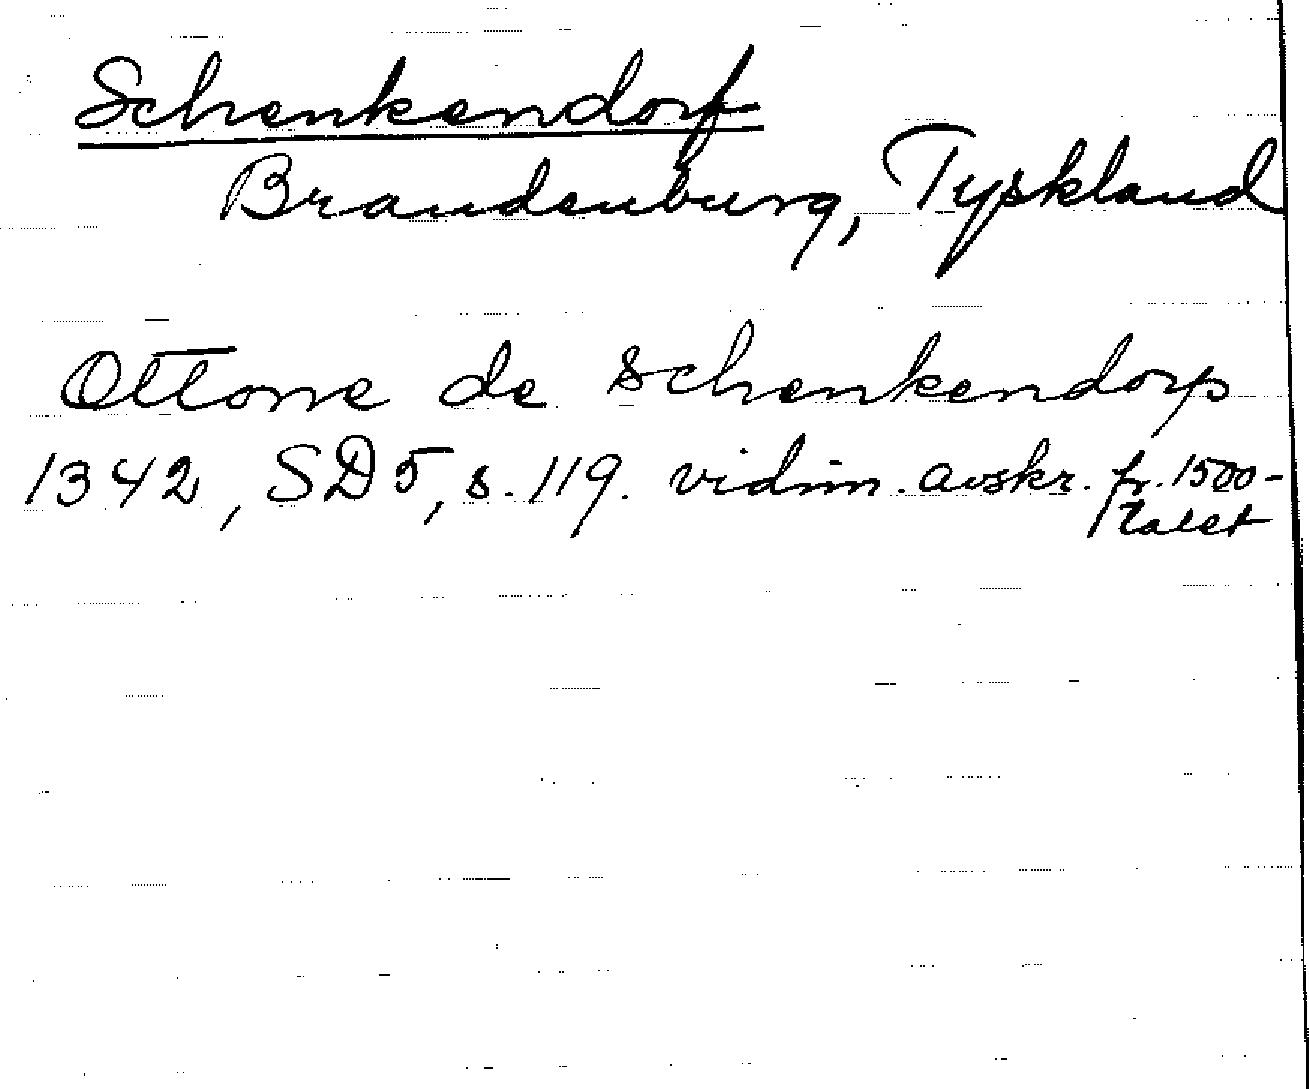 Schenkendorf
Brandenburg, Tyskland
Ottone de Schenkendorp
1342, SD5, s. 119. vidim. avskr. fr. 1500-
talet